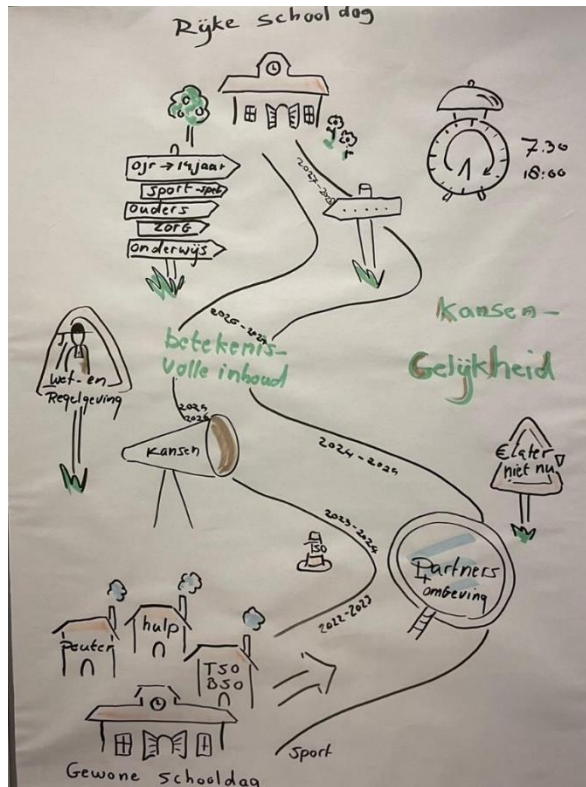 Rijke schooldag
7.30
18:00
0jr → 14 jaar
sport-spel
ouders
zorg
onderwijs
Kansen-
Gelijkheid
betekenis-
volle inhoud
wet- en
Regelgeving
2025
2026
Kansen
2024-2025
€ later
niet nu
2023-2024
TSO
Partners
+
omgeving
2022-2023
peuter
hulp
TSO
BSO
sport
Gewone schooldag